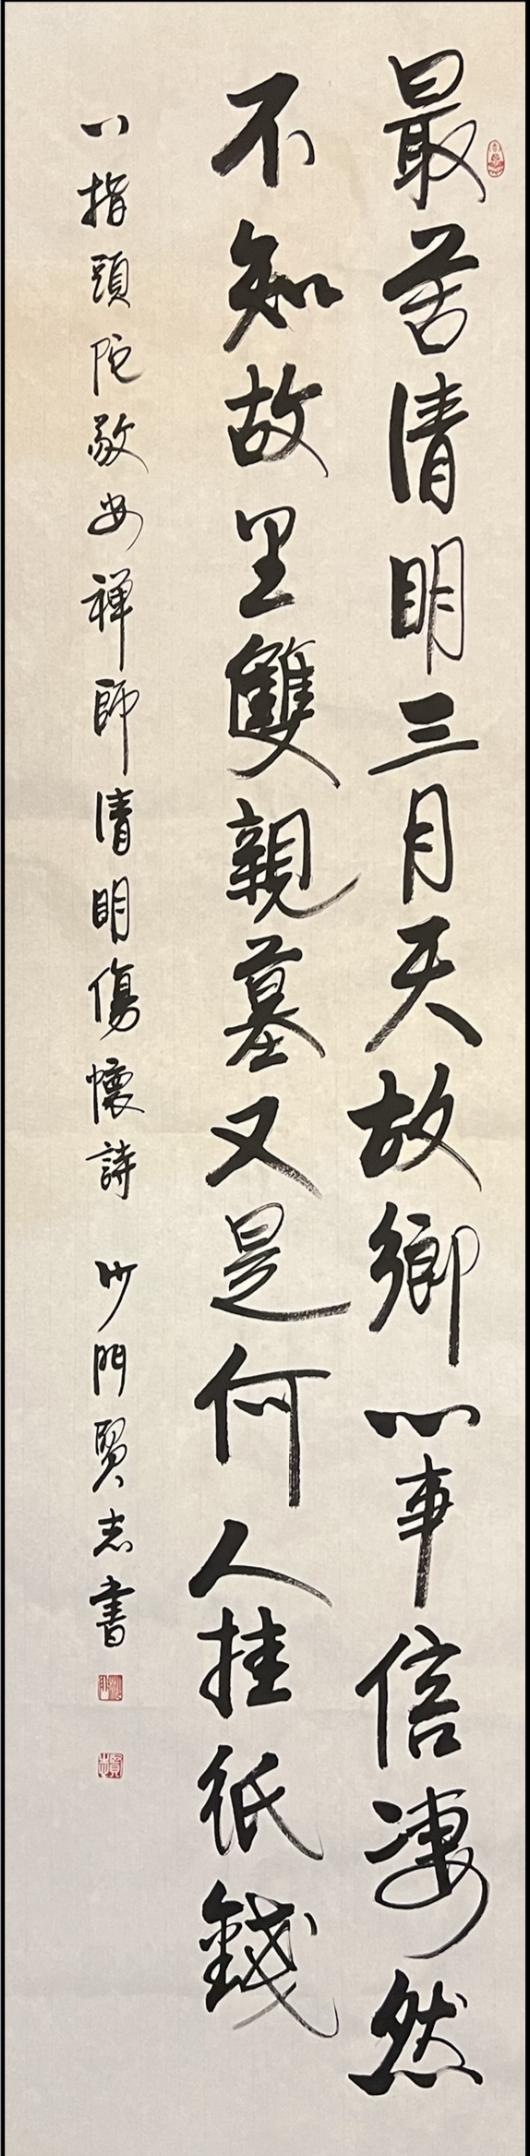 最苦清明三月天故鄉心事信淒然
不知故里雙親墓又是何人挂紙錢
八指頭陀敬安禪師清明傷懷詩 沙門賢志書